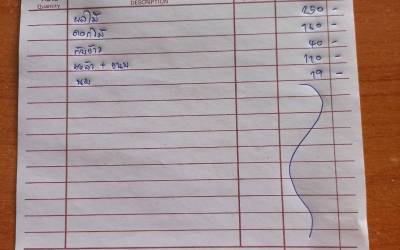 Quantity DESCRIPTION
ผลไม้ 250 -
ดอกไม้ 160 -
40 -
+ ขนม 110 -
นม 19 -